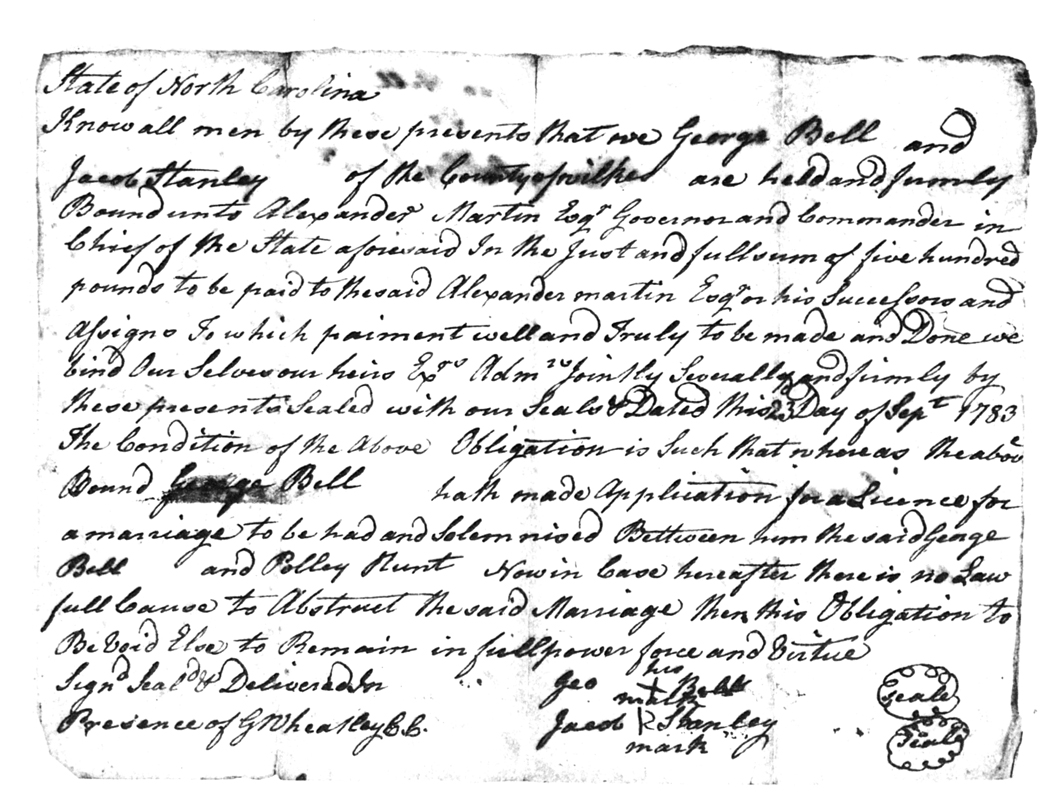 State of North Carolina
Know all men by these presents that we George Bell and
Jacob Stanley of the County of wilkes are held and firmly
Bound unto Alexander Martin Esqr Governor and Commander in
Chief of the State aforesaid In the Just and full sum of five hundred
pounds to be paid to the said Alexander martin Esqr or his Successors and
Assigns To which paiment well and Truly to be made and Done we
bind Our Selves our heirs Exrs Admrs Jointly Severally and firmly by
these presents Sealed with our Seals & Dated this 23 Day of Sept 1783
The Condition of the Above Obligation is Such that whereas the above
Bound George Bell hath made Application for a Licence for
a marriage to be had and Solemnised Between him the said George
Bell and Polley Runt Now in Case hereafter there is no Law
full Cause to Abstruct the said Marriage then this Obligation to
Be Void Else to Remain in full power force and Virtue
Signd Seald & Delivered In Geo his + mark Bell seale
Presence of G Wheatley C.C. Jacob Stanley mark Seale